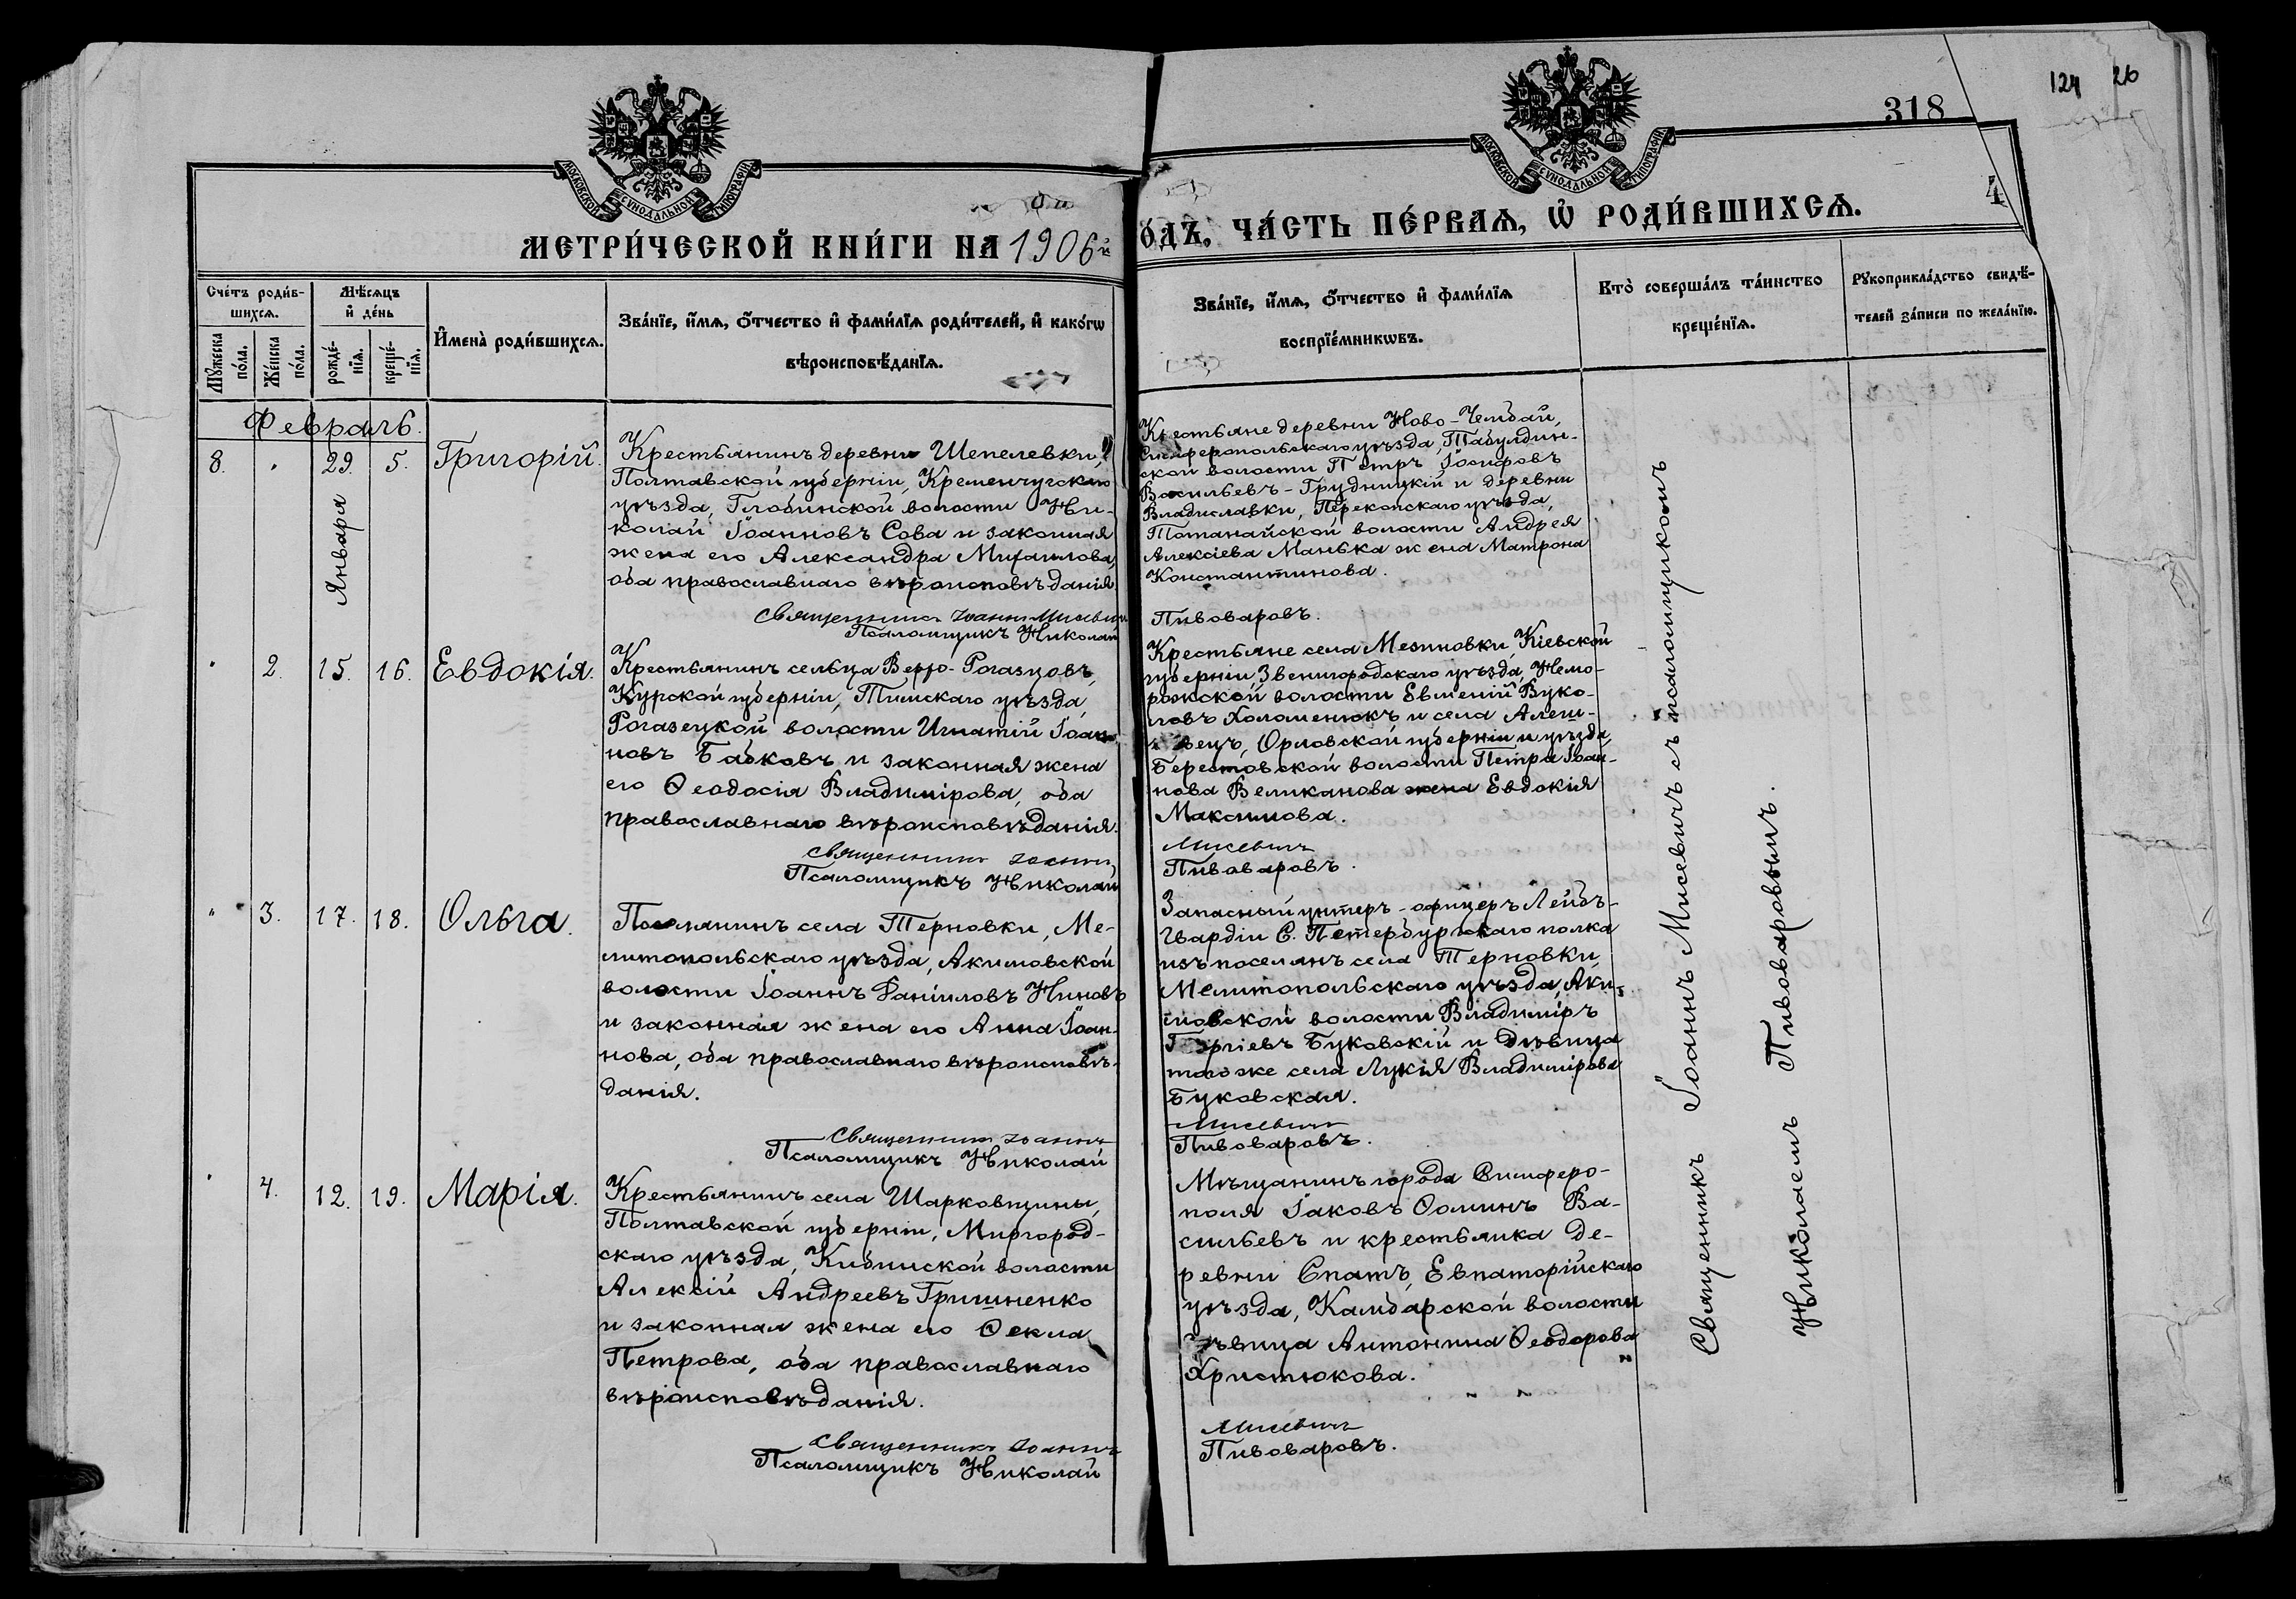 124 26
318
МОСКОВСКОЙ СУНОДАЛЬНОЙ ТИПОГРАФІИ
МОСКОВСКОЙ СУНОДАЛЬНОЙ ТИПОГРАФІИ
4
МЕТРИ́ЧЕСКОЙ КНИ́ГИ НА 1906й
О́ДЪ, ЧА́СТЬ ПЕ́РВАѦ, Ѡ҆ РОДИ́ВШИХСѦ.
Сче́тъ роди́в-
шихсѧ.
Мꙋ́жеска по́ла.
Же́нска по́ла.
Мѣ́сѧцъ
и҆ де́нь
рожде́-
нїѧ.
креще́-
нїѧ.
И҆мена̀ роди́вшихсѧ.
Зва́нїе, и҆́мѧ, ѻ҆́тчество и҆ фами́лїѧ роди́телей, и҆ како́гѡ
вѣроисповѣ́данїѧ.
Зва́нїе, и҆́мѧ, ѻ҆́тчество и҆ фами́лїѧ
воспрїе́мникѡвъ.
Кто̀ соверша́лъ та́инство
креще́нїѧ.
Рꙋкоприкла́дство свидѣ́-
телей за́писи по жела́нїю.
Февраль.
8. " 29. 5. Григорій.
Января
Крестьянинъ деревни Шепелевки,
Полтавской губерніи, Кременчугскаго
уѣзда, Глобинской волости Ни-
колай Іоанновъ Сова и законная
жена его Александра Михаилова,
оба православнаго вѣроисповѣданія.
Священникъ Іоаннъ Мисевичъ
Псаломщикъ Николай
Крестьяне деревни Ново-Челбай,
Симферопольскаго уѣзда, Табулдин-
ской волости Петръ Іосифовъ
Васильевъ-Грудницкій и деревни
Владиславки, Перекопскаго уѣзда,
Потанайской волости Андрея
Алексіева Манька жена Матрона
Константинова.
Пивоваровъ.
" 2. 15. 16. Евдокія.
Крестьянинъ сельца Верхо-Рогазцовъ,
Курской губерніи, Тимскаго уѣзда,
Рогазецкой волости Игнатій Іоан-
новъ Бабковъ и законная жена
его Ѳеодосія Владимірова, оба
православнаго вѣроисповѣданія.
Священникъ Іоаннъ
Псаломщикъ Николай
Крестьяне села Мезиновки, Кіевской
губерніи Звенигородскаго уѣзда, Немо-
рожской волости Евменій Вуко-
ловъ Холоменюкъ и села Алеш-
вецъ, Орловской губерніи и уѣзда,
Берестовской волости Петра Іоан-
нова Великанова жена Евдокія
Максимова.
Мисевичъ
Пивоваровъ.
" 3. 17. 18. Ольга.
Поселянинъ села Терновки, Ме-
литопольскаго уѣзда, Акимовской
волости Іоаннъ Даніиловъ Ниновъ
и законная жена его Анна Іоан-
нова, оба православнаго вѣроисповѣ-
данія.
Священникъ Іоаннъ
Псаломщикъ Николай
Запасный унтеръ-офицеръ Лейбъ-
Гвардіи С. Петербургскаго полка
изъ поселянъ села Терновки,
Мелитопольскаго уѣзда, Аки-
мовской волости Владиміръ
Георгіевъ Буковскій и дѣвица
того же села Лукія Владимірова
Буковская.
Мисевичъ
Пивоваровъ.
" 4. 12. 19. Марія.
Крестьянинъ села Шарковщины,
Полтавской губерніи, Миргород-
скаго уѣзда, Кибинской волости
Алексій Андреевъ Гришненко
и законная жена его Ѳекла
Петрова, оба православнаго
вѣроисповѣданія.
Священникъ Іоаннъ
Псаломщикъ Николай
Мѣщанинъ города Симферо-
поля Іаковъ Ѳоминъ Ва-
сильевъ и крестьянка де-
ревни Спатъ, Евпаторійскаго
уѣзда, Камбарской волости
дѣвица Антонина Ѳеодорова
Христюкова.
Мисевичъ
Пивоваровъ.
Священникъ Іоаннъ Мисевичъ съ псаломщикомъ
Николаемъ Пивоваровымъ.